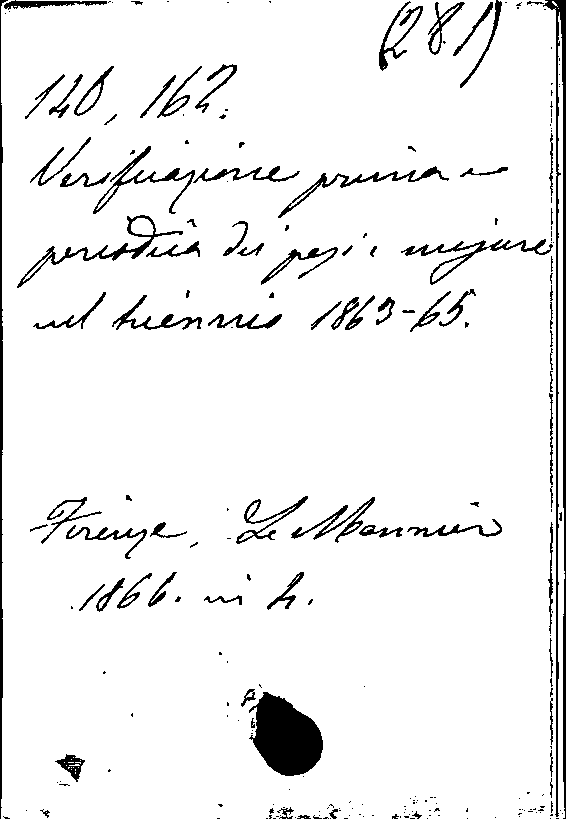 (281)
140, 162.
Verificazione prima e
periodica dei pesi e misure
nel triennio 1863-65.
Firenze, Le Monnier
1866. in 4.